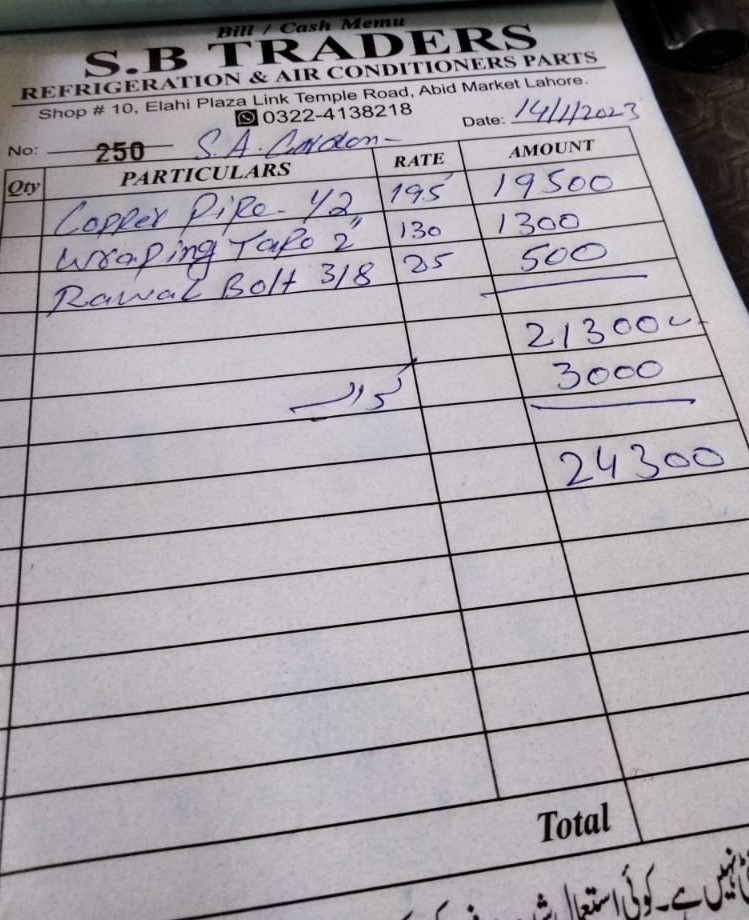 Bill / Cash Memu
S.B TRADERS
REFRIGERATION & AIR CONDITIONERS PARTS
Shop # 10, Elahi Plaza Link Temple Road, Abid Market Lahore.
0322-4138218
No: 250 S.A. Date: 14/1/2023
Qty PARTICULARS RATE AMOUNT
Copper Pipe - 1/2 195 19500
Wraping Tape 2" 130 1300
Rawal Bolt 3/8 25 500
21300
کرایہ 3000
24300
Total
نہیں ہے۔ کوئی استعمال